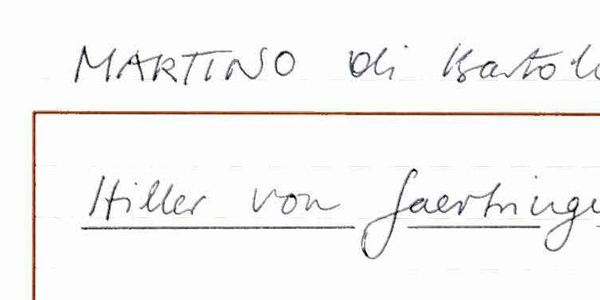 MARTINO di Bartolo
Hiller von Gaertringe